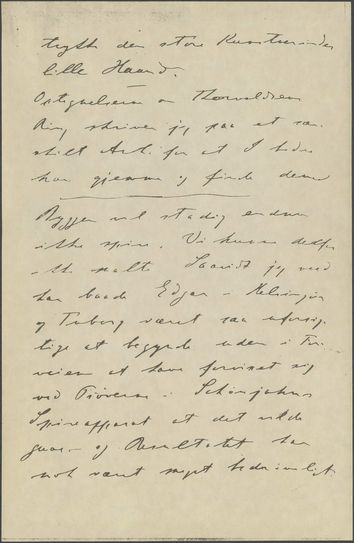 trykk den store Kunstnerindes
lille Haand.
Optegnelsen om Thorvaldsens
Ring skriver jeg paa et sær-
skilt Ark for at I bedre
kan gjemme og finde den
Byggen vil stadig endnu
ikke spire. Vi kunne derfor
ikke malte. Saavidt jeg ved
har baade Edgar i Helsingør
og Tuborg været saa uforsig-
tige at begynde uden i For-
veien at have forvisset sig
ved Prøverne i Schönjahns
Spireapparat at det vilde
gaae og Resultatet har
nok været meget bedrøveligt.